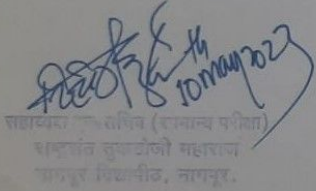 10 may 2023
सहाय्यक सचिव (सामान्य परीक्षा)
राष्ट्रसंत तुकडोजी महाराज
नागपूर विद्यापीठ, नागपूर.